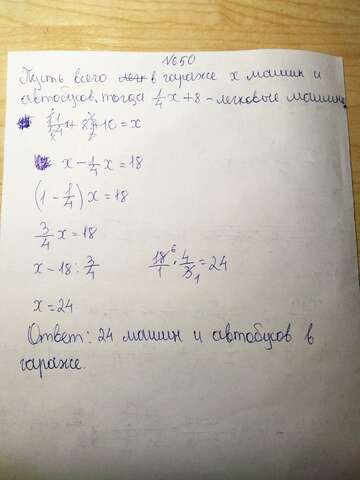 №650
Пусть всего в гараже x машин и
автобусов, тогда 1/4 x + 8 - легковые машины
(1/4 x + 8) + 10 = x
x - 1/4 x = 18
(1 - 1/4) x = 18
3/4 x = 18
x - 18 : 3/4    18/1 · 4/3 = 24
6 1
x = 24
Ответ: 24 машин и автобусов в
гараже.